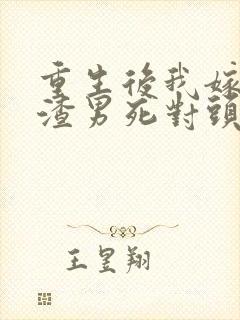 重生後我嫁
渣男死對頭
王昱翔